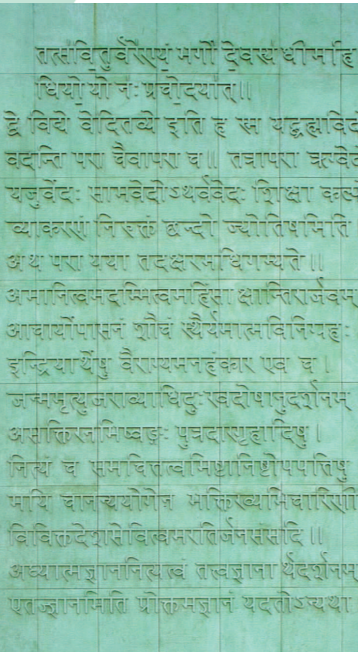 तत्सवितुर्वरेण्यं भर्गो देवस्य धीमहि
धियो यो नः प्रचोदयात्॥
द्वे विद्ये वेदितव्ये इति ह स्म यद्ब्रह्मविदो
वदन्ति परा चैवापरा च॥ तत्रापरा ऋग्वेदो
यजुर्वेदः सामवेदोऽथर्ववेदः शिक्षा कल्पो
व्याकरणं निरुक्तं छन्दो ज्योतिषमिति
अथ परा यया तदक्षरमधिगम्यते॥
अमानित्वमदम्भित्वमहिंसा क्षान्तिरार्जवम्
आचार्योपासनं शौचं स्थैर्यमात्मविनिग्रहः
इन्द्रियार्थेषु वैराग्यमनहंकार एव च।
जन्ममृत्युजराव्याधिदुःखदोषानुदर्शनम्
असक्तिरनभिष्वङ्गः पुत्रदारगृहादिषु।
नित्यं च समचित्तत्वमिष्टानिष्टोपपत्तिषु
मयि चानन्ययोगेन भक्तिरव्यभिचारिणी
विविक्तदेशसेवित्वमरतिर्जनसंसदि॥
अध्यात्मज्ञाननित्यत्वं तत्त्वज्ञानार्थदर्शनम्
एतज्ज्ञानमिति प्रोक्तमज्ञानं यदतोऽन्यथा